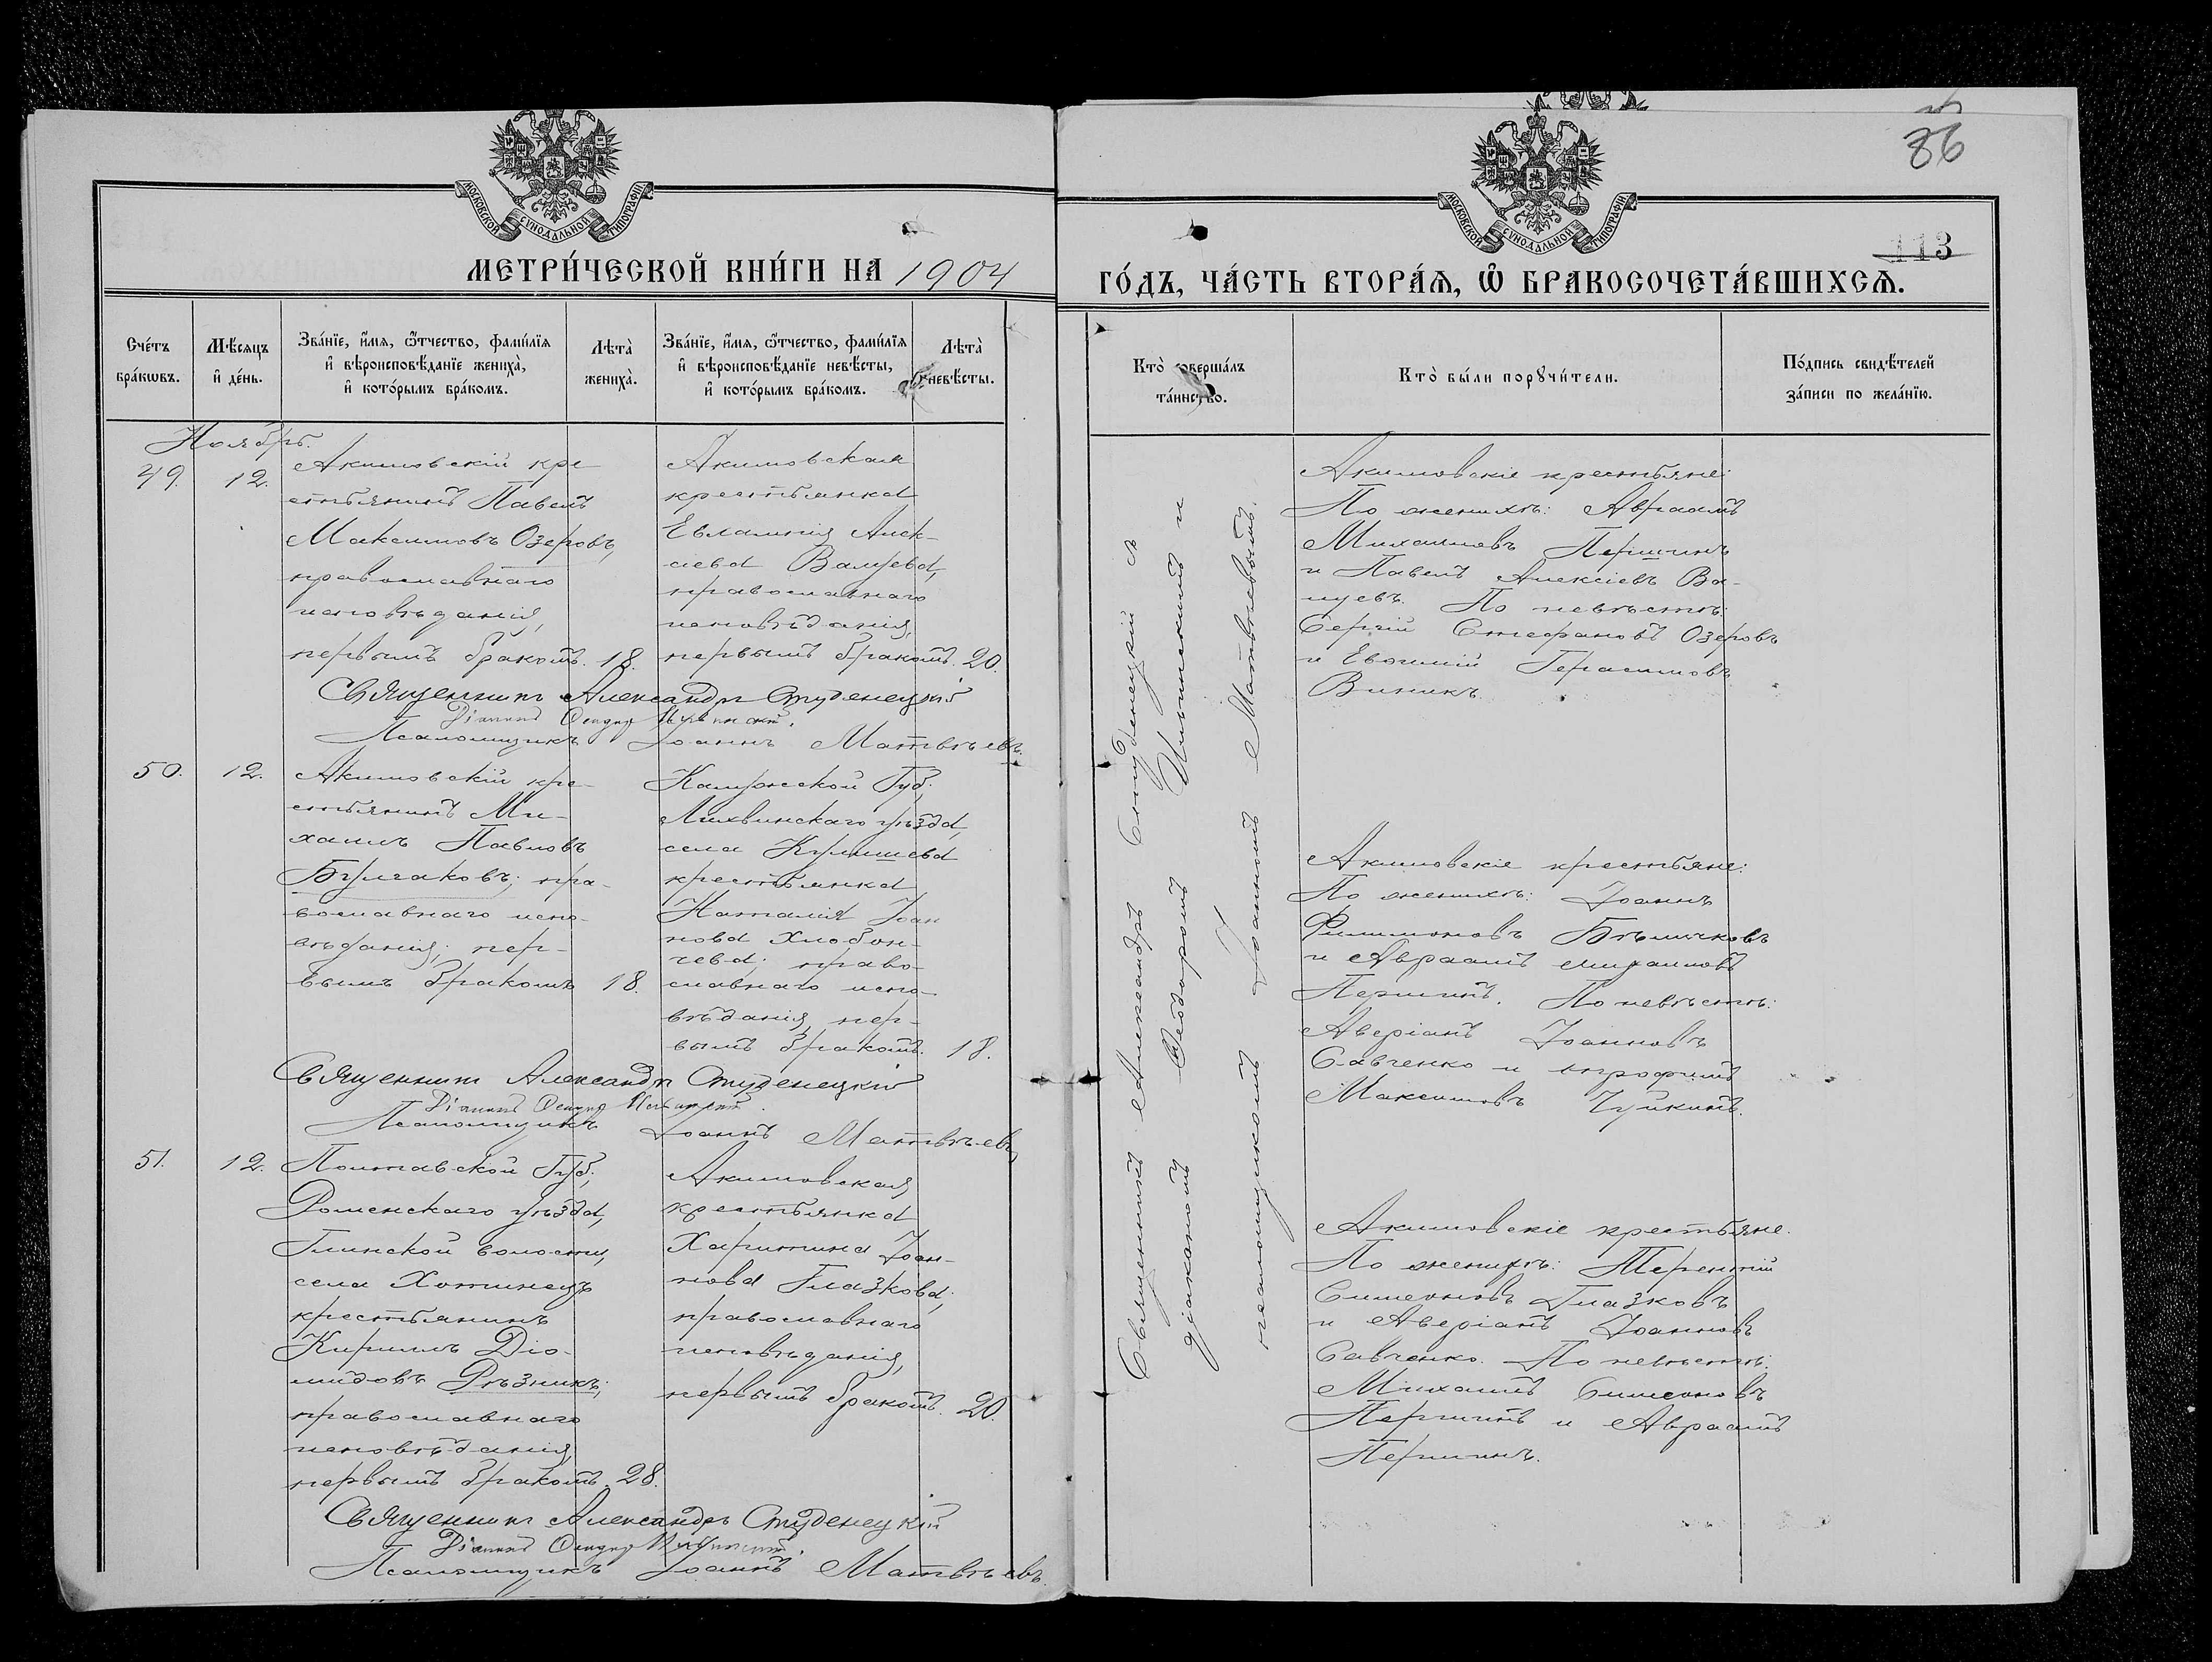 86
113
МОСКОВСКОЙ СѴНОДАЛЬНОЙ ТИПОГРАФІИ
МОСКОВСКОЙ СѴНОДАЛЬНОЙ ТИПОГРАФІИ
МЕТРИ́ЧЕСКОЙ КНИ́ГИ НА 1904
ГО́ДЪ, ЧА́СТЬ ВТОРА́Ѧ, Ѽ БРАКОСОЧЕТА́ВШИХСѦ.
Сче́тъ
бра́кωвъ.
Мѣ́сяцъ
и҆ де́нь.
Зва́нїе, и҆́мѧ, ѻ҆́тчество, фами́лїѧ
и҆ вѣроисповѣ́данїе жениха̀,
и҆ кото́рымъ бра́комъ.
Лѣта̀
жениха̀.
Зва́нїе, и҆́мѧ, ѻ҆́тчество, фами́лїѧ
и҆ вѣроисповѣ́данїе невѣ́сты,
и҆ кото́рымъ бра́комъ.
Лѣта̀
невѣ́сты.
Кто̀ соверша́лъ
та́инство.
Кто̀ бы́ли порꙋчи́тели.
По́дпись свидѣ́телей
за́писи по жела́нїю.
Ноябрь.
49.
12.
Акимовскій кре
стьянинъ Павелъ
Максимовъ Озеровъ,
православнаго
исповѣданія,
первымъ бракомъ. 18.
Акимовская
крестьянка
Евлампія Алек-
сіева Валуева,
православнаго
исповѣданія,
первымъ бракомъ. 20.
Священникъ Александръ Студенецкій
Діаконъ Ѳеодоръ Ильинскій.
Псаломщикъ Іоаннъ Матвѣевъ.
50.
12.
Акимовскій кре-
стьянинъ Ми-
хаилъ Павловъ
Булгаковъ; пра-
вославнаго испо-
вѣданія; пер-
вымъ бракомъ 18.
Калужской Губ.
Лихвинскаго уѣзда,
села
крестьянка
Наталія Іоан
нова
православнаго испо-
вѣданія, пер-
вымъ бракомъ. 18.
Священникъ Александръ Студенецкій
Діаконъ Ѳеодоръ Ильинскій.
Псаломщикъ Іоаннъ Матвѣевъ
51.
12.
Полтавской Губ.
Роменскаго уѣзда,
Глинской волости,
села Хоминецъ
крестьянинъ
Кириллъ Діо-
мидовъ Рѣзникъ;
православнаго
исповѣданія,
первымъ бракомъ. 28.
Акимовская
крестьянка
Харитина Іоан-
нова Глазкова;
православнаго
исповѣданія,
первымъ бракомъ. 20.
Священникъ Александръ Студенецкій
Діаконъ Ѳеодоръ Ильинскій.
Псаломщикъ Іоаннъ Матвѣевъ.
Священникъ Александръ Студенецкій съ
діакономъ Ѳеодоромъ Ильинскимъ и
псаломщикомъ Іоанномъ Матвѣевымъ.
Акимовскіе крестьяне:
По женихѣ: Авраамъ
Михаиловъ Першинъ
и Павелъ Алексіевъ Ва-
луевъ. По невѣстѣ:
Сергій Стефановъ Озеровъ
и Евѳимій Герасимовъ
Виникъ.
Акимовскіе крестьяне:
По женихѣ: Іоаннъ
Филимоновъ Бѣличковъ
и Авраамъ Михаиловъ
Першинъ. По невѣстѣ:
Аверіанъ Іоанновъ
Савченко и Трофимъ
Максимовъ Чуйкинъ.
Акимовскіе крестьяне.
По женихѣ: Терентій
Симеоновъ Глазковъ
и Аверіанъ Іоанновъ
Савченко. По невѣстѣ:
Михаилъ Симеоновъ
Першинъ и Авраамъ
Першинъ.